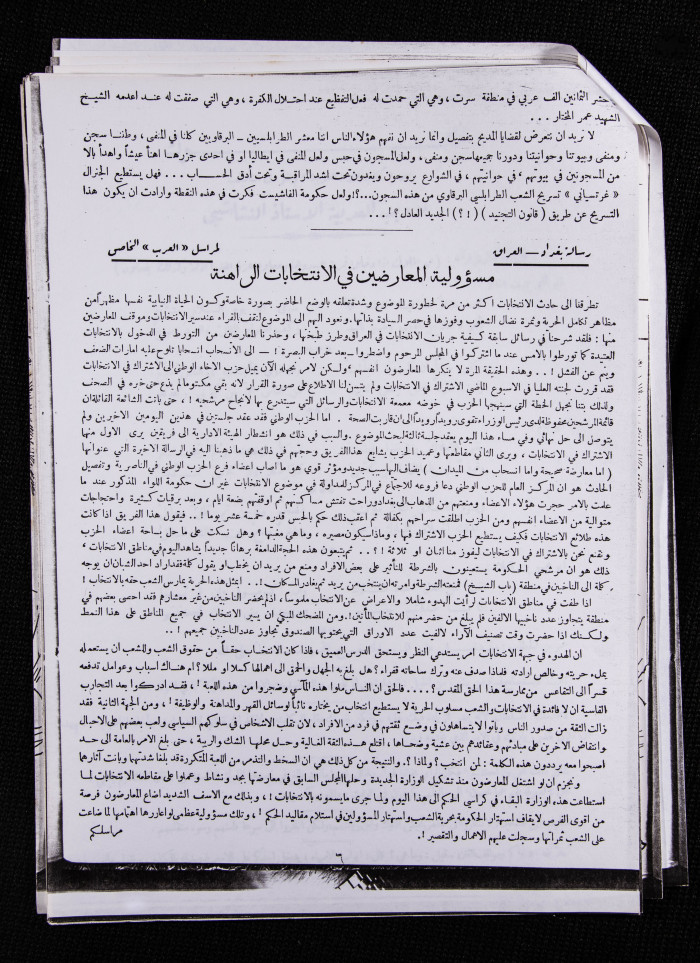 حشر الثمانين الف عربي في منطقة سرت ، وهي التي حمدت له فعل التفظيع عند احتلال الكفرة ، وهي التي صفقت له عند اعدامه الشيخ
الشهيد عمر المختار . . .
لا نريد ان نتعرض لقضايا المديح بتفصيل وانما نريد ان نفهم هؤلاء الناس اننا معشر الطرابلسيين ــ البرقاويين كلنا في المنفى ، وطننا سجن
ومنفى وبيوتنا وحوانيتنا ودورنا جميعها سجن ومنفى ، ولعل المسجون في حبس ولعل المنفى في ايطاليا او في احدى جزرها اهنأ عيشاً واهدأ بالا
من المسجونين في بيوتهم ، في حوانيتهم ، في الشوارع يروحون ويغدون تحت اشد المراقبة وتحت أدق الحساب . . . فهل يستطيع الجنرال
« غرتسياني » تسريح الشعب الطرابلسي البرقاوي من هذه السجون ...؟! ولعل حكومة الفاشيست فكرت في هذه النقطة وارادت ان يكون هذا
التسريح عن طريق ( قانون التجنيد ) ( ! ؟ ) الجديد العادل ؟ ! . . .
رسالة بغداد ــ العراق
لمراسل « العرب » الخاص
مسؤولية المعارضين في الانتخابات الراهنة
تطرقنا الى حادث الانتخابات اكثر من مرة لخطورة الموضوع وشدة تعلقه بالوضع الحاضر بصورة خاصة وكون الحياة النيابية نفسها مظهراً من
مظاهر تكامل الحرية وثمرة نضال الشعوب وفوزها في حصر السيادة بذاتها. ونعود اليوم الى الموضوع لنتحف القراء عند سير الانتخابات وموقف المعارضين
منها : فلقد شرحنا في رسائل سابقة كيفية جريان الانتخابات في العراق وطرز طبخها ، وحذرنا المعارضين من التورط في الدخول بالانتخابات
العتيدة كما تورطوا بالامس عند ما اشتركوا في المجلس المرحوم واضطروا ــ بعد خراب البصرة ! ــ الى الانسحاب انسحاباً تلوح عليه امارات الضعف
وينم عن الفشل ! . . وهذه الحقيقة المرة لا ينكرها المعارضون انفسهم ، ولكن لامر نجهله الآن يميل حزب الاخاء الوطني الى الاشتراك في الانتخابات
فقد قررت لجنته العليا في الاسبوع الماضي الاشتراك في الانتخابات ولم يتسن لنا الاطلاع على صورة القرار لانه بقي مكتوماً لم يذع حتى خبره في الصحف
ولذلك بتنا نجهل الخطة التي سينهجها الحزب في خوضه معمعة الانتخابات والرسائل التي سيتذرع بها لانجاح مرشحيه ! ، حتى باتت الشائعة القائلة ان
قائمة المرشحين محفوظة لدى رئيس الوزراء تقوى رويداً رويداً الى ان قاربت الصحة . اما الحزب الوطني فقد عقد جلستين في هذين اليومين الاخيرين ولم
يتوصل الى حل نهائي وفي مساء هذا اليوم يعقد جلسة ثالثة لبحث الموضوع . والسبب في ذلك هو انشطار الهيئة الادارية الى فريقين يرى الاول منها
الاشتراك في الانتخابات ، ويرى الثاني مقاطعتها وعميد الحزب يشايع هذا الفريق وحجتهم في ذلك هي ما ذهبنا اليه في الرسالة الاخيرة التي عنوانها
( اما معارضة صحيحة واما انسحاب من الميدان ) يضاف اليها سبب جديد ومؤثر قوي هو ما اصاب اعضاء فرع الحزب الوطني في الناصرية وتفصيل
الحادث هو ان المركز العام للحزب الوطني دعا فروعه للاجتماع في المركز للمداولة في موضوع الانتخابات غير ان حكومة اللواء المذكور عند ما
علمت بالامر حجرت هؤلاء الاعضاء ومنعتهم من الذهاب الى بغداد وراحت تفتش مساكنهم ثم اوقفتهم بضعة ايام ، وبعد برقيات كثيرة واحتجاجات
متوالية من الاعضاء انفسهم ومن الحزب اطلقت سراحهم بكفالة ثم اعقب ذلك حكم بالحبس قدره خمسة عشر يوماً ! . . فيقول هذا الفريق اذا كانت
هذه طلائع الانتخابات فكيف يستطيع الحزب الاشتراك فيها ، وماذا سيكون مصيره ، وما هي مغبتها ؟ وهل نسكت على ما حل بساحة اعضاء الحزب
ونقنع نحن بالاشتراك في الانتخابات ليفوز منا اثنان او ثلاثة ! ؟ . . ثم يتبعون هذه الحجة الدامغة برهاناً جديداً يشاهد اليوم في مناطق الانتخابات ،
ذلك هو ان مرشحي الحكومة يستعينون بالشرطة للتأثير على بعض الافراد ومنع من يريد ان يخطب او يقول كلمة فقد اراد احد الشبان ان يوجه
كلمة الى الناخبين في منطقة ( باب الشيخ ) فمنعته الشرطة وامرته ان ينتخب من يريد ثم يغادر المكان ! . . أبمثل هذه الحرية يمارس الشعب حقه بالانتخاب !
اذا طفت في مناطق الانتخابات لرأيت الهدوء شاملا والاعراض عن الانتخاب ملموساً ، اذ لم يحضر الناخبين من غير معشارهم فقد احصى بعضهم في
منطقة يتجاوز عدد ناخبيها الالفين فلم يبلغ من حضر منهم للانتخاب المأتين! . ومن المضحك المبكي ان يسير الانتخاب في جميع المناطق على هذا النمط
ولكنك اذا حضرت وقت تصنيف الآراء لألفيت عدد الاوراق التي يحتويها الصندوق تجاوز عدد الناخبين جميعهم ! . .
ان الهدوء في جبهة الانتخابات امر يستدعي النظر ويستحق الدرس العميق ، فاذا كان الانتخاب حقاً من حقوق الشعب وللشعب أن يستعمله
بملء حريته وخالص ارادته فلماذا صدف عنه وترك ساحاته فقراء ؟ هل بلغ به الجهل والحمق الى اهمالها كسلا او مللا ؟ ام هناك اسباب وعوامل تدفعه
قسراً الى التقاعس عن ممارسة هذا الحق المقدس ؟ . . . . فالحق ان الناس ملوا هذه المآسي وضجروا من هذه اللعبة ! ، فقد ادركوا بعد التجارب
القاسية ان لا فائدة في الانتخابات والشعب مسلوب الحرية لا يستطيع انتخاب من يختاره نائباً لوسائل القهر والمداهنة والوظيفة ! ، ومن الجهة الثانية فقد
زالت الثقة من صدور الناس وباتوا لا يتساهلون في وضع ثقتهم في فرد من الافراد ، لان تقلب الاشخاص في سلوكهم السياسي ولعب بعضهم على الاحبال
وانتفاض الآخرين على مبادئهم وعقائدهم بين عشية وضحاها ، اقتلع هذه الثقة الغالية وحل محلها الشك والريبة ، حتى بلغ الامر بالعامة الى حد
اصبحوا معه يرددون هذه الكلمة : لمن انتخب ؟ ولماذا ؟ . والنتيجة من كل ذلك هي ان السخط والتذمر من اللعبة المتكررة قد بلغا شدتهما وبانت آثارهما
ونجزم ان لو اشتغل المعارضون منذ تشكيل الوزارة الجديدة وحلها المجلس السابق في معارضتها بجد ونشاط وعملوا على مقاطعه الانتخابات لما
استطاعت هذه الوزارة البقاء في كراسي الحكم الى هذا اليوم ولما جرى ما يسمونه بالانتخابات ! ، وبذلك مع الاسف الشديد اضاع المعارضون فرصة
من اقوى الفرص لايقاف استهتار الحكومة بحرية الشعب واستهتار المسؤولين في استلام مقاليد الحكم ! ، وتلك مسؤولية عظمى لو اعاروها اهتمامهم لما ضاعت
على الشعب ثمراتها وسجلت عليهم الاهمال والتقصير ! .
مراسلكم
٦